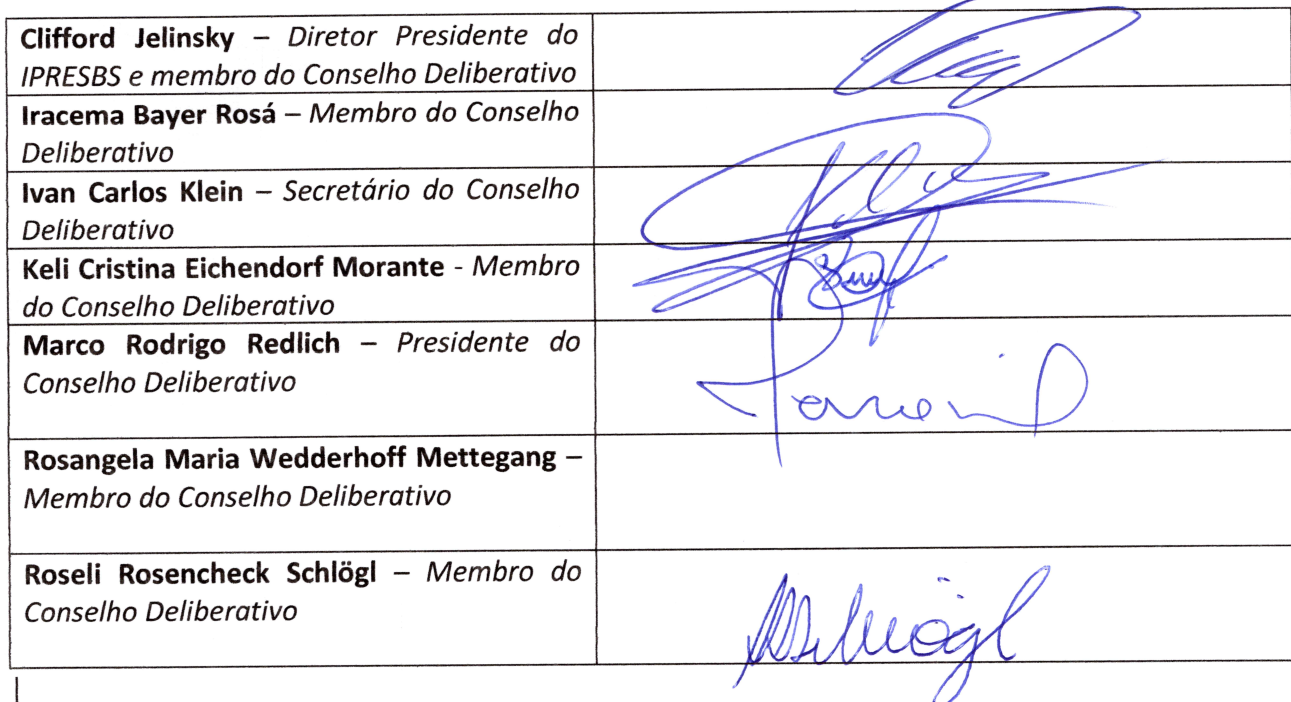 Clifford Jelinsky – Diretor Presidente do
IPRESBS e membro do Conselho Deliberativo
Iracema Bayer Rosá – Membro do Conselho
Deliberativo
Ivan Carlos Klein – Secretário do Conselho
Deliberativo
Keli Cristina Eichendorf Morante - Membro
do Conselho Deliberativo
Marco Rodrigo Redlich – Presidente do
Conselho Deliberativo
Rosangela Maria Wedderhoff Mettegang –
Membro do Conselho Deliberativo
Roseli Rosencheck Schlögl – Membro do
Conselho Deliberativo